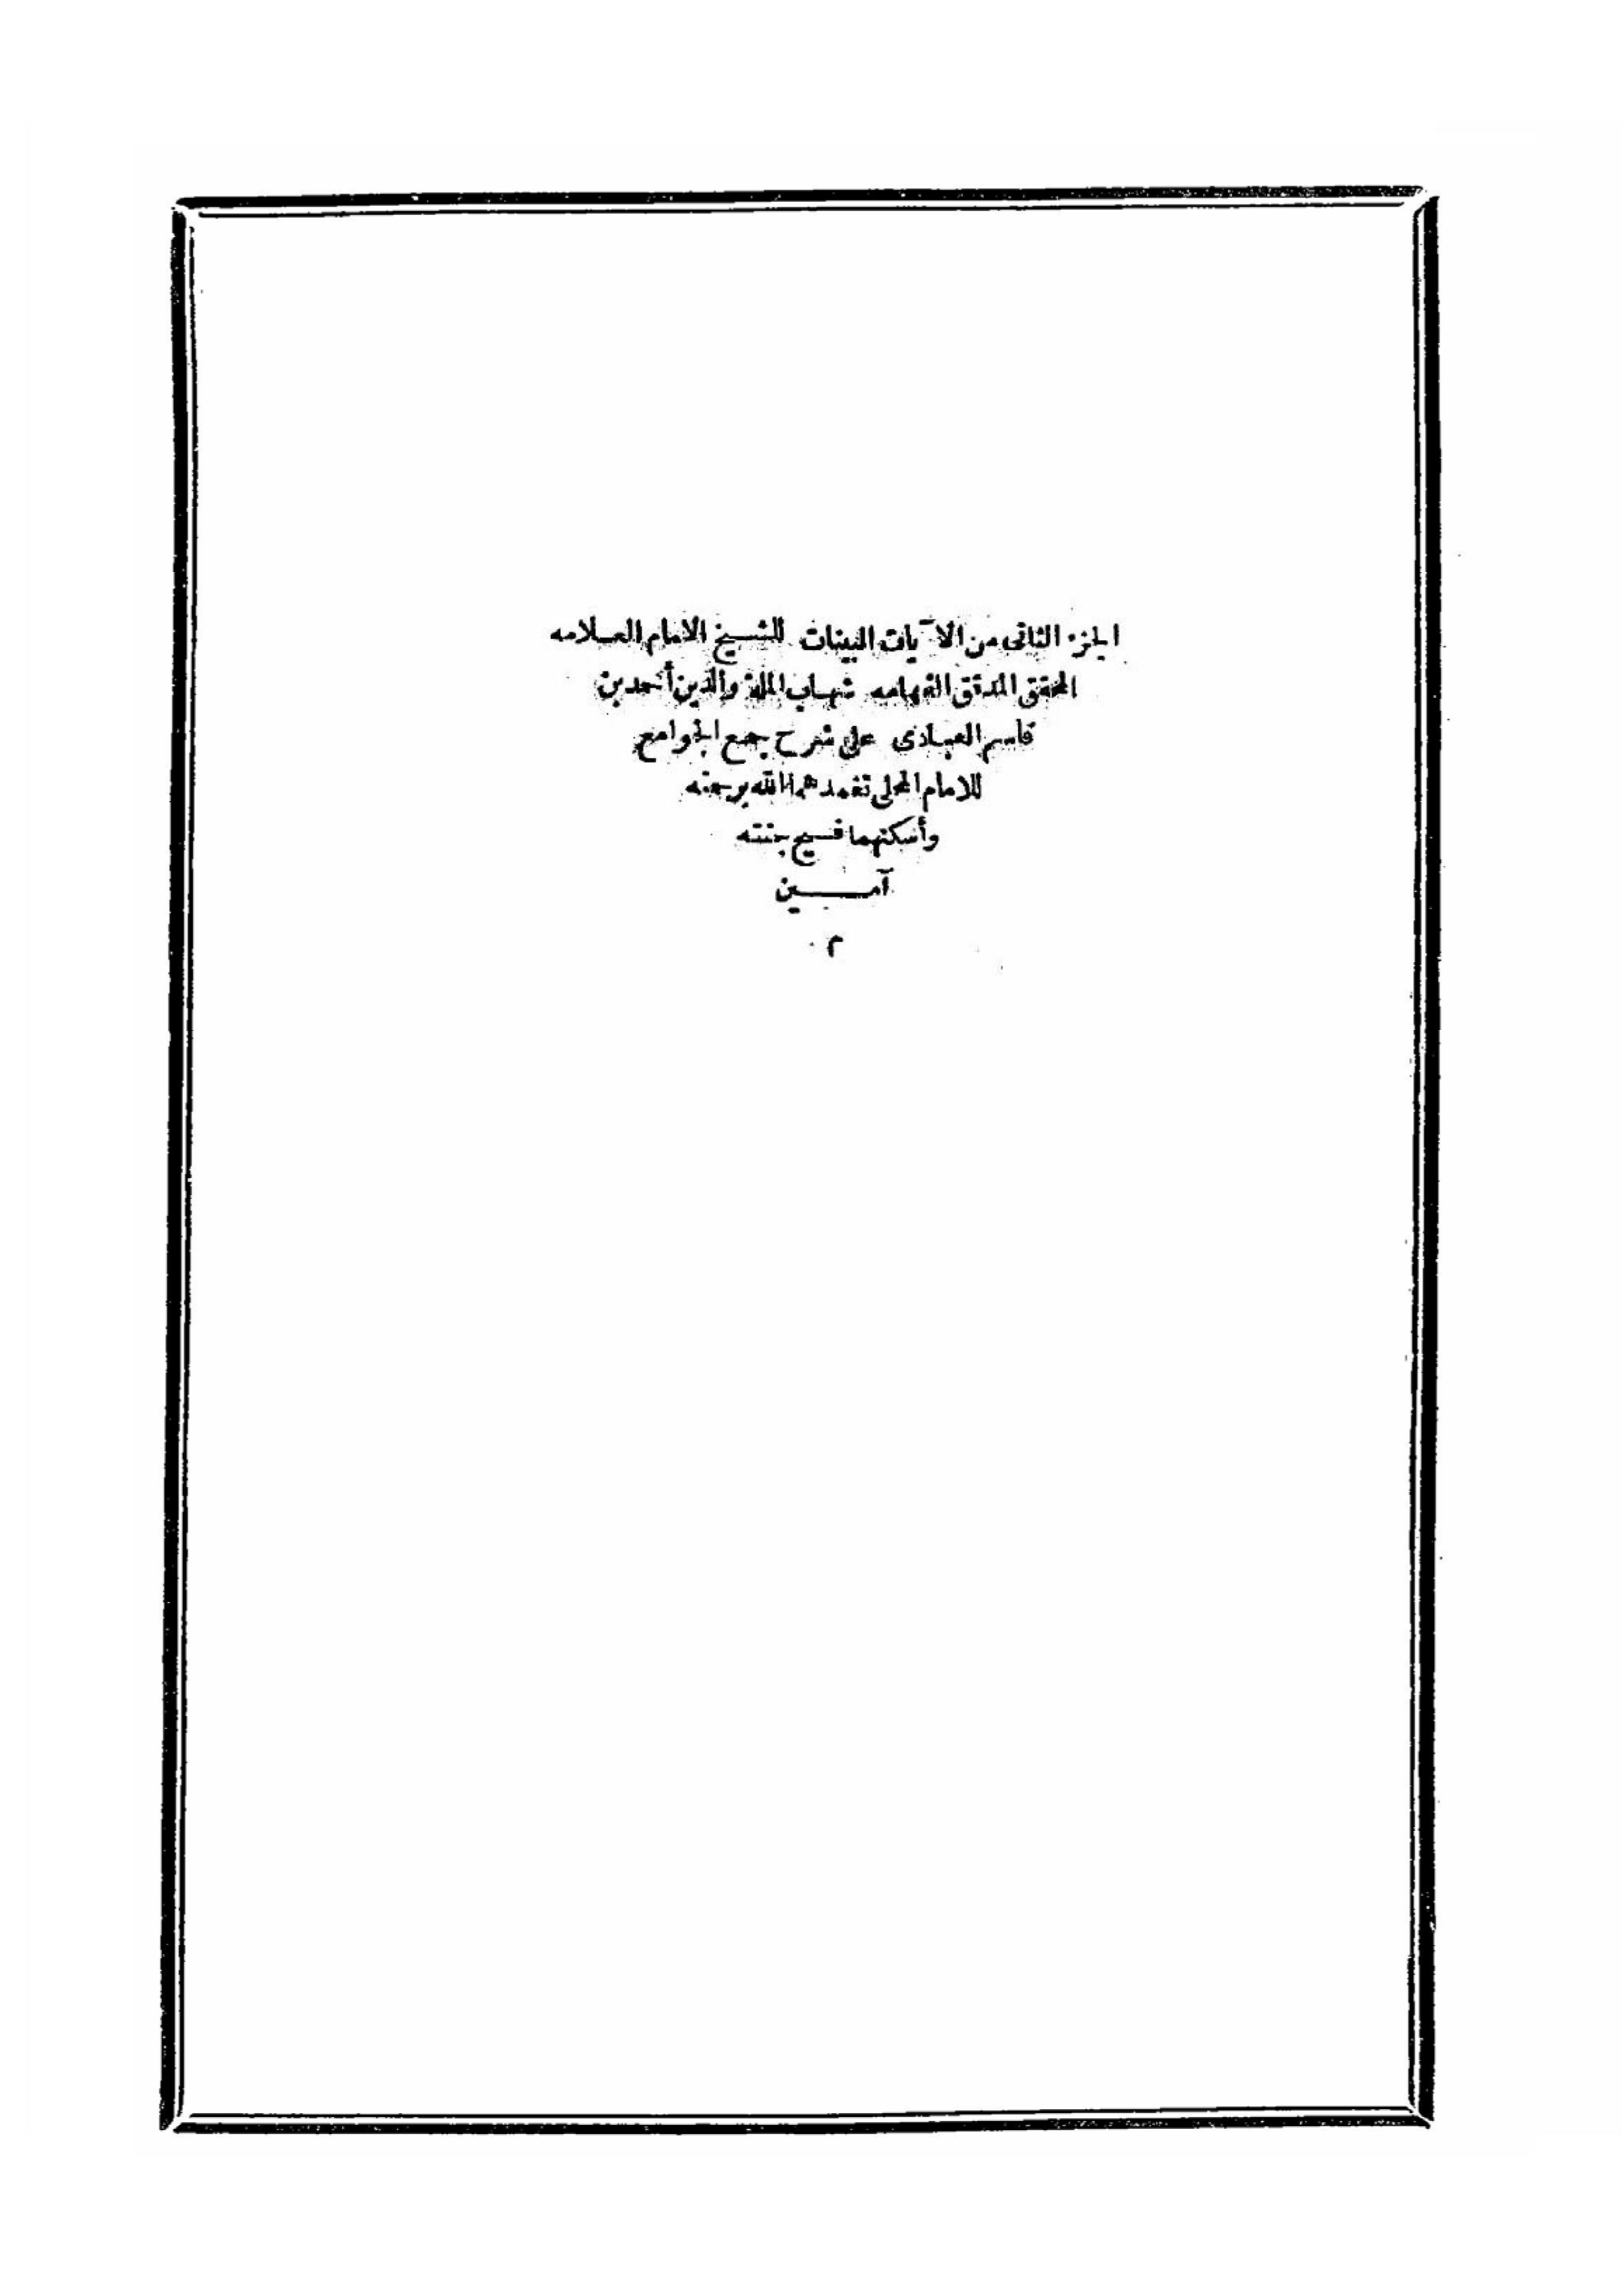 الجزء الثانى من الآيات البينات للشيخ الامام العلامه
المحقق المدقق الفهامه شهاب الملة والدين أحمد بن
قاسم العبادى على شرح جمع الجوامع
للامام المحلى تغمدهما الله برحمته
وأسكنهما فسيح جنته
آمين
م